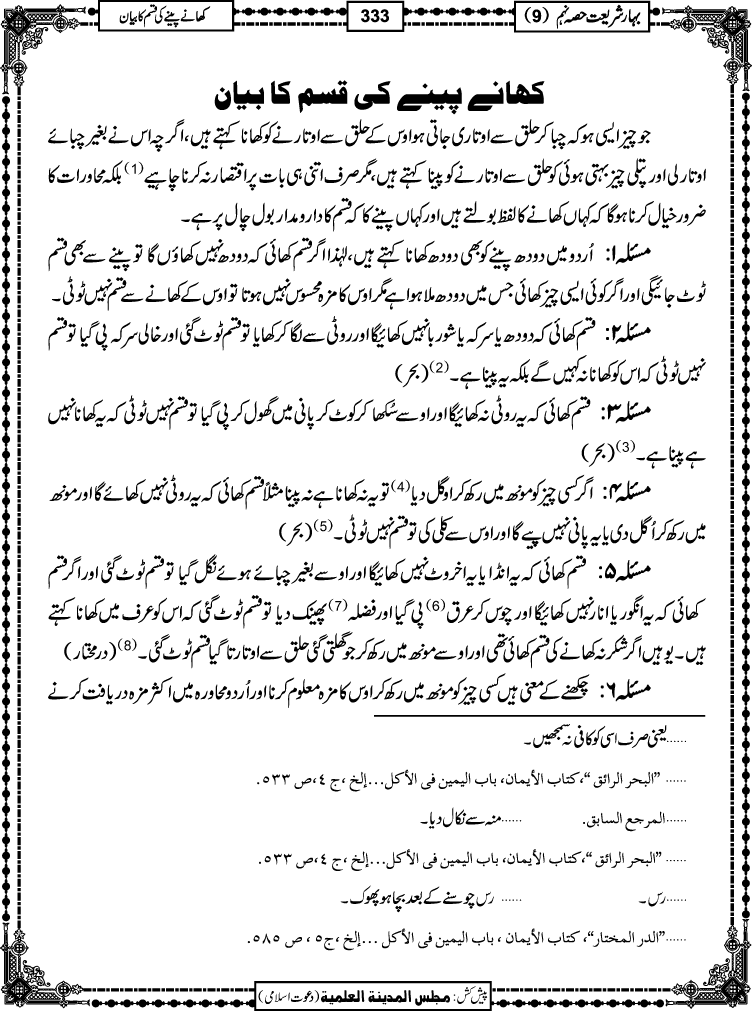 بہارشریعت حصہ نہم (9)
333
کھانے پینے کی قسم کا بیان
کھانے پینے کی قسم کا بیان
جو چیز ایسی ہو کہ چبا کر حلق سے اوتاری جاتی ہو اوس کے حلق سے اوتارنے کو کھانا کہتے ہیں، اگرچہ اس نے بغیر چبائے
اوتار لی اور پتلی چیز بہتی ہوئی کو حلق سے اوتارنے کو پینا کہتے ہیں، مگر صرف اتنی ہی بات پر اقتصار نہ کرنا چاہیے (1) بلکہ محاورات کا
ضرور خیال کرنا ہوگا کہ کہاں کھانے کا لفظ بولتے ہیں اور کہاں پینے کا کہ قسم کا دارومدار بول چال پر ہے۔
مسئلہ ۱: اُردو میں دودھ پینے کو بھی دودھ کھانا کہتے ہیں، لہٰذا اگر قسم کھائی کہ دودھ نہیں کھاؤں گا تو پینے سے بھی قسم
ٹوٹ جائیگی اور اگر کوئی ایسی چیز کھائی جس میں دودھ ملا ہوا ہے مگر اوس کا مزہ محسوس نہیں ہوتا تو اوس کے کھانے سے قسم نہیں ٹوٹی۔
مسئلہ ۲: قسم کھائی کہ دودھ یا سرکہ یا شوربا نہیں کھائیگا اور روٹی سے لگا کر کھایا تو قسم ٹوٹ گئی اور خالی سرکہ پی گیا تو قسم
نہیں ٹوٹی کہ اس کو کھانا نہ کہیں گے بلکہ یہ پینا ہے۔ (2) (بحر)
مسئلہ ۳: قسم کھائی کہ یہ روٹی نہ کھائیگا اور اوسے سُکھا کر کوٹ کر پانی میں گھول کر پی گیا تو قسم نہیں ٹوٹی کہ یہ کھانا نہیں
ہے پینا ہے۔ (3) (بحر)
مسئلہ ۴: اگر کسی چیز کو مونھ میں رکھ کر اوگل دیا (4) تو یہ نہ کھانا ہے نہ پینا مثلاً قسم کھائی کہ یہ روٹی نہیں کھائے گا اور مونھ
میں رکھ کر اُگل دی یا یہ پانی نہیں پیے گا اور اوس سے کلی کی تو قسم نہیں ٹوٹی۔ (5) (بحر)
مسئلہ ۵: قسم کھائی کہ یہ انڈا یا یہ اخروٹ نہیں کھائیگا اور اوسے بغیر چبائے ہوئے نگل گیا تو قسم ٹوٹ گئی اور اگر قسم
کھائی کہ یہ انگور یا انار نہیں کھائیگا اور چوس کر عرق (6) پی گیا اور فضلہ (7) پھینک دیا تو قسم ٹوٹ گئی کہ اس کو عرف میں کھانا کہتے
ہیں۔ یوہیں اگر شکر نہ کھانے کی قسم کھائی تھی اور اوسے مونھ میں رکھ کر جو گھلتی گئی حلق سے اوتارتا گیا قسم ٹوٹ گئی۔ (8) (درمختار)
مسئلہ ۶: چکھنے کے معنی ہیں کسی چیز کو مونھ میں رکھ کر اوس کا مزہ معلوم کرنا اور اُردو محاورہ میں اکثر مزہ دریافت کرنے
......یعنی صرف اسی کو کافی نہ سمجھیں۔
......"البحر الرائق"، کتاب الأیمان، باب الیمین فی الأکل...إلخ، ج ٤، ص ٥٣٣.
......المرجع السابق. ......منہ سے نکال دیا۔
......"البحر الرائق"، کتاب الأیمان، باب الیمین فی الأکل...إلخ، ج ٤، ص ٥٣٣.
......رس۔ ......رس چوسنے کے بعد بچا ہو پھوک۔
......"الدر المختار"، کتاب الأیمان، باب الیمین فی الأکل...إلخ، ج٥، ص ٥٨٥.
پیش کش: مجلس المدینة العلمیة (دعوت اسلامی)